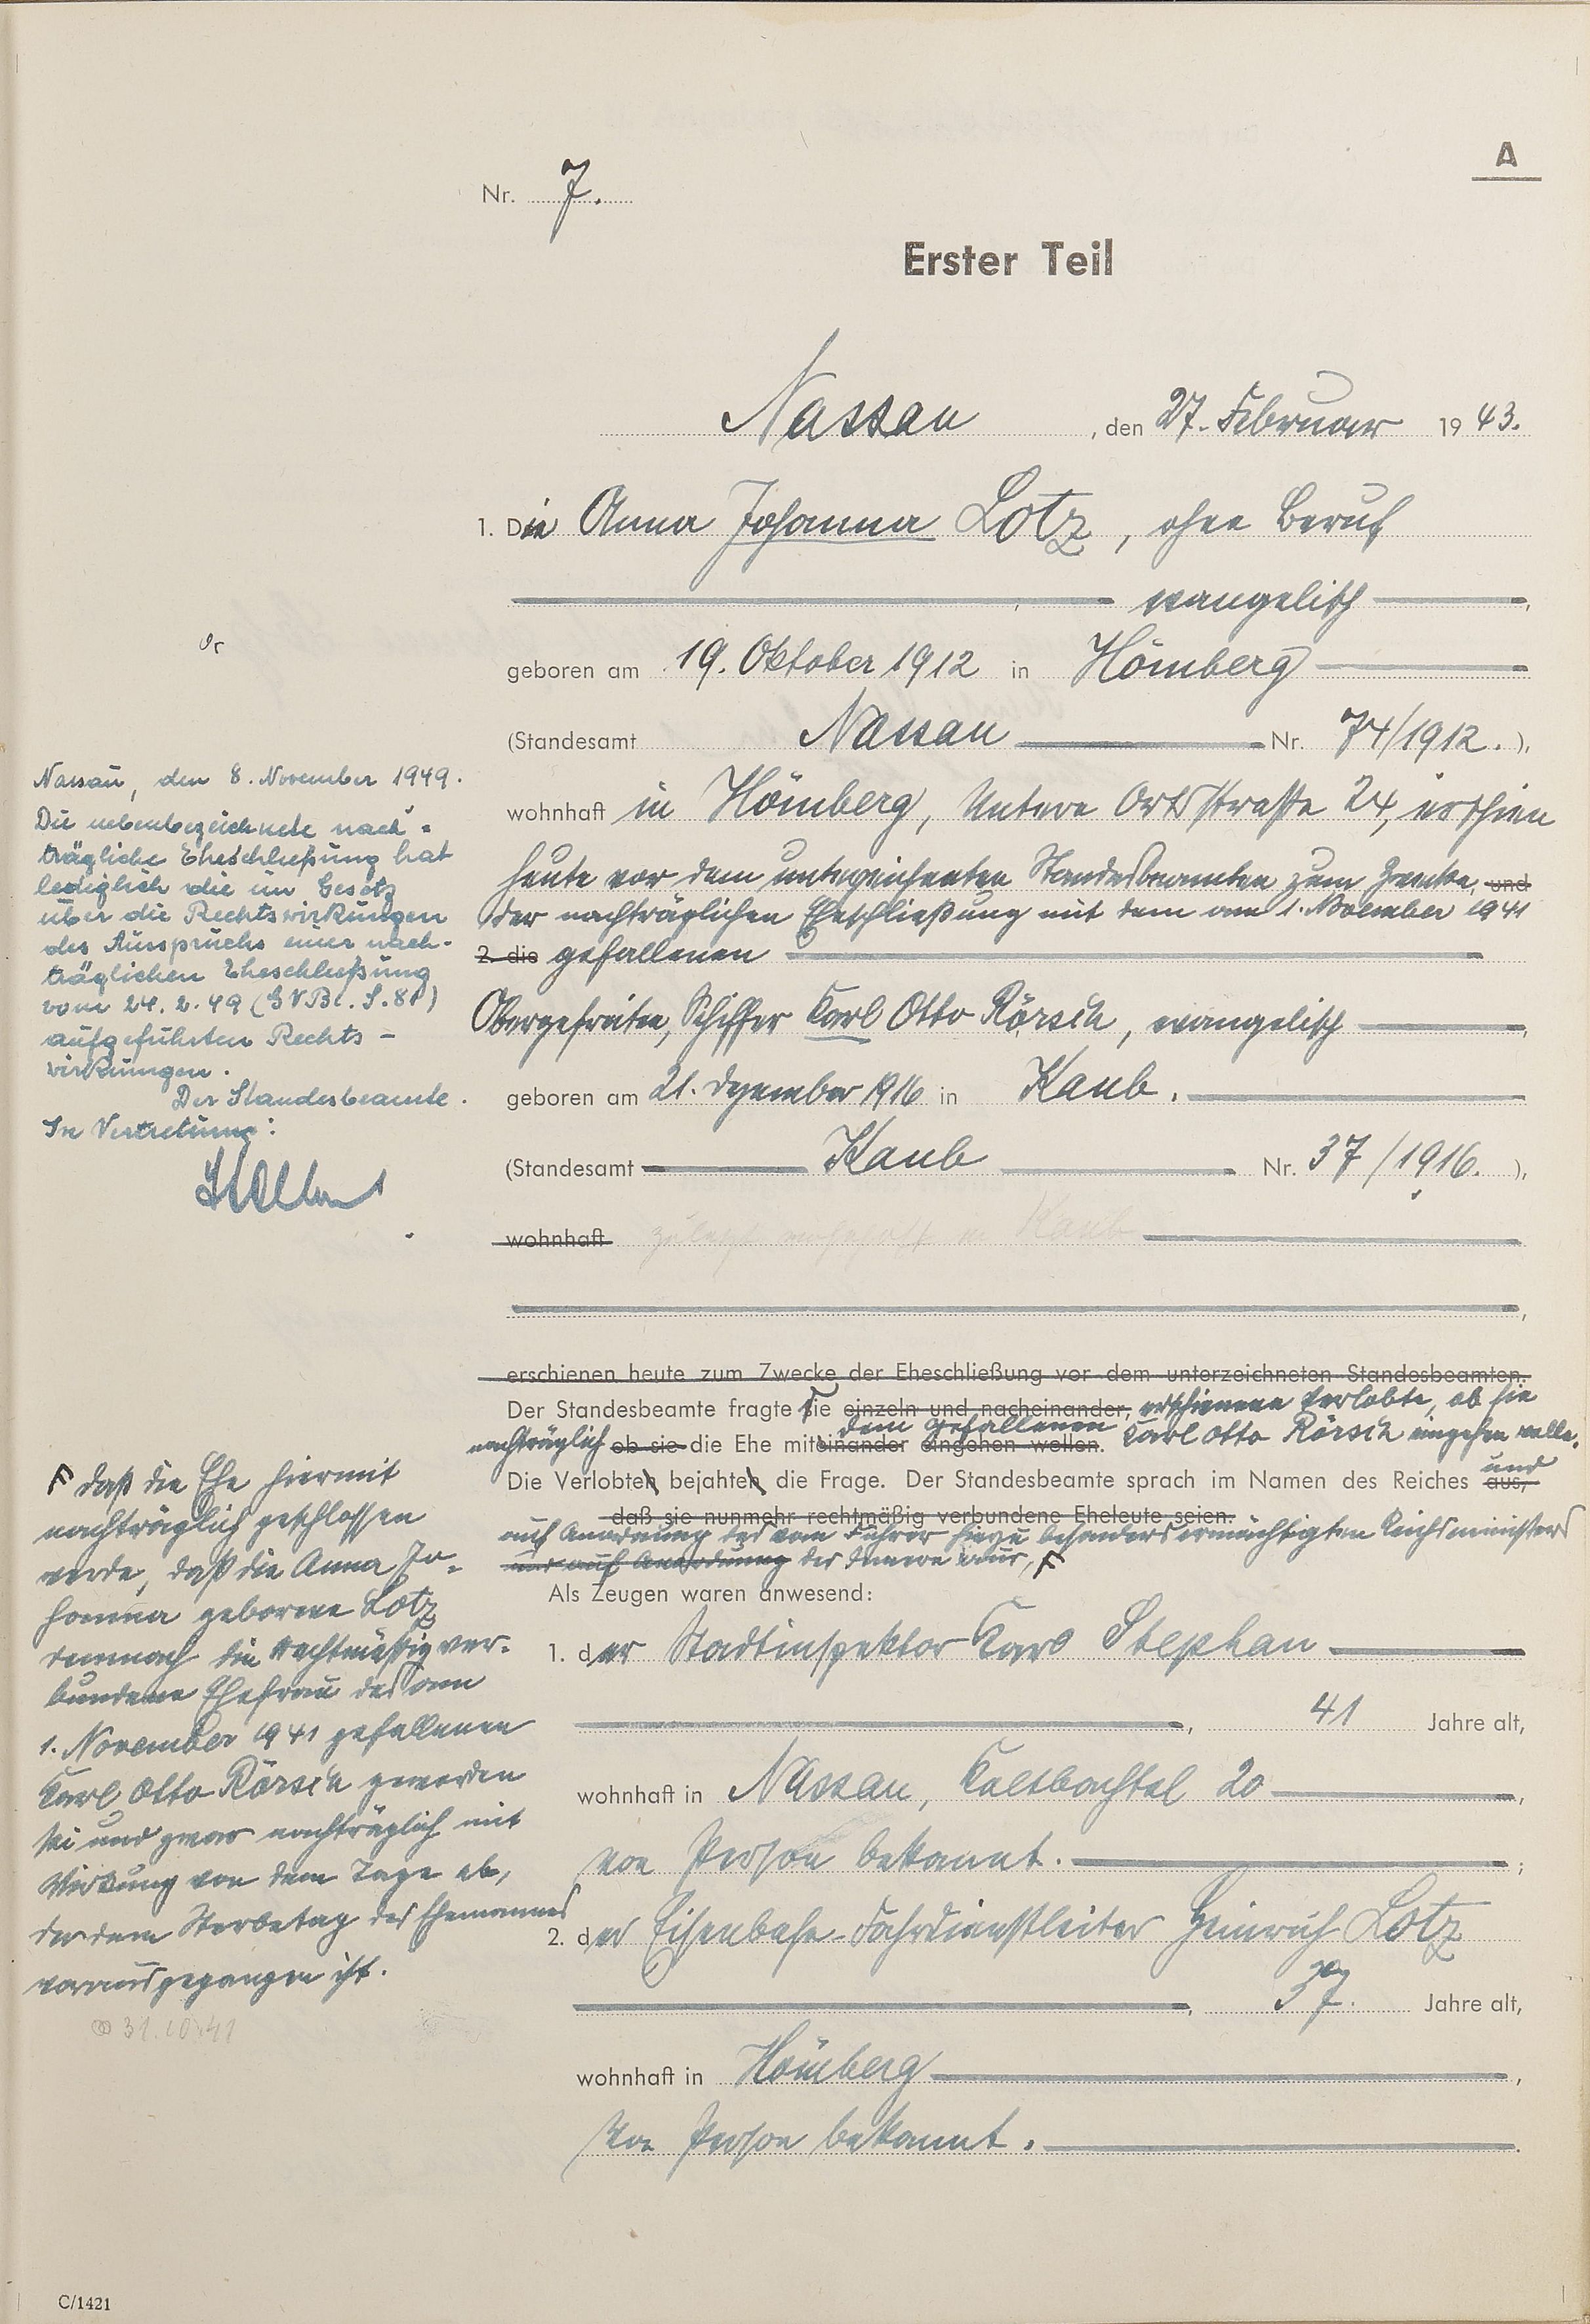 A
Nr. 7.
Erster Teil
Nassau, den 27. Februar 1943.
1. Die Anna Johanna Lotz, ohne Beruf
evangelisch,
geboren am 19. Oktober 1912 in Hömberg
(Standesamt Nassau Nr. 74/1912.),
wohnhaft in Hömberg, Untere Ortsstraße 24, erschien
heute vor dem unterzeichneten Standesbeamten zum Zwecke und
der nachträglichen Eheschließung mit dem am 1. November 1941
2. die gefallenen
Obergefreiten, Schiffer Karl Otto Rörsch, evangelisch,
geboren am 21. Dezember 1916 in Kaub.
(Standesamt Kaub Nr. 37/1916.),
wohnhaft zuletzt wohnhaft in Kaub
erschienen heute zum Zwecke der Eheschließung vor dem unterzeichneten Standesbeamten.
Der Standesbeamte fragte die einzeln und nacheinander, erschienene Verlobte, ob sie
dem gefallenen
nachträglich ob sie die Ehe miteinander eingehen wollen. Karl Otto Rörsch eingehen wolle.
Die Verlobten bejahten die Frage. Der Standesbeamte sprach im Namen des Reiches aus, und
daß sie nunmehr rechtmäßig verbundene Eheleute seien.
auf Anordnung des vom Führer hiezu besonders ermächtigten Reichsministers
und auf Anordnung des Innern aus, F
Als Zeugen waren anwesend:
1. der Stadtinspektor Karl Stephan
, 41 Jahre alt,
wohnhaft in Nassau, Kaltbachtal 20,
von Person bekannt.;
2. der Eisenbahn-Fahrdienstleiter Heinrich Lotz
, 37. Jahre alt,
wohnhaft in Hömberg,
von Person bekannt.
Nassau, den 8. November 1949.
Die nebenbezeichnete nach-
trägliche Eheschließung hat
lediglich die im Gesetz
über die Rechtswirkungen
des Ausspruchs einer nach-
träglichen Eheschließung
vom 24. 2. 49 (GVBl. S. 81)
aufgeführten Rechts-
wirkungen.
Der Standesbeamte.
In Vertretung:
F daß die Ehe hiermit
nachträglich geschlossen
werde, daß die Anna Jo-
hanna geborene Lotz
demnach die rechtmäßig ver-
bundene Ehefrau des am
1. November 1941 gefallenen
Karl Otto Rörsch geworden
sei und zwar nachträglich mit
Wirkung von dem Tage ab,
der dem Sterbetag des Ehemannes
vorausgegangen ist.
⚭ 31.10.41
C/1421